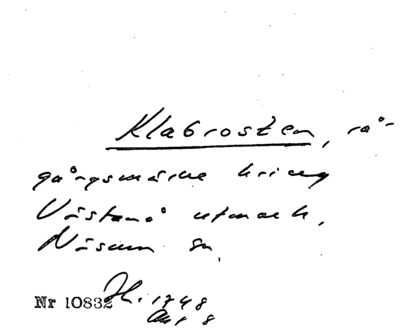 Klabrosten, rå-
gångsmärke kring
Västanå utmark,
Näsum sn.
Nr 10832 Jh. 1748
Akt 8